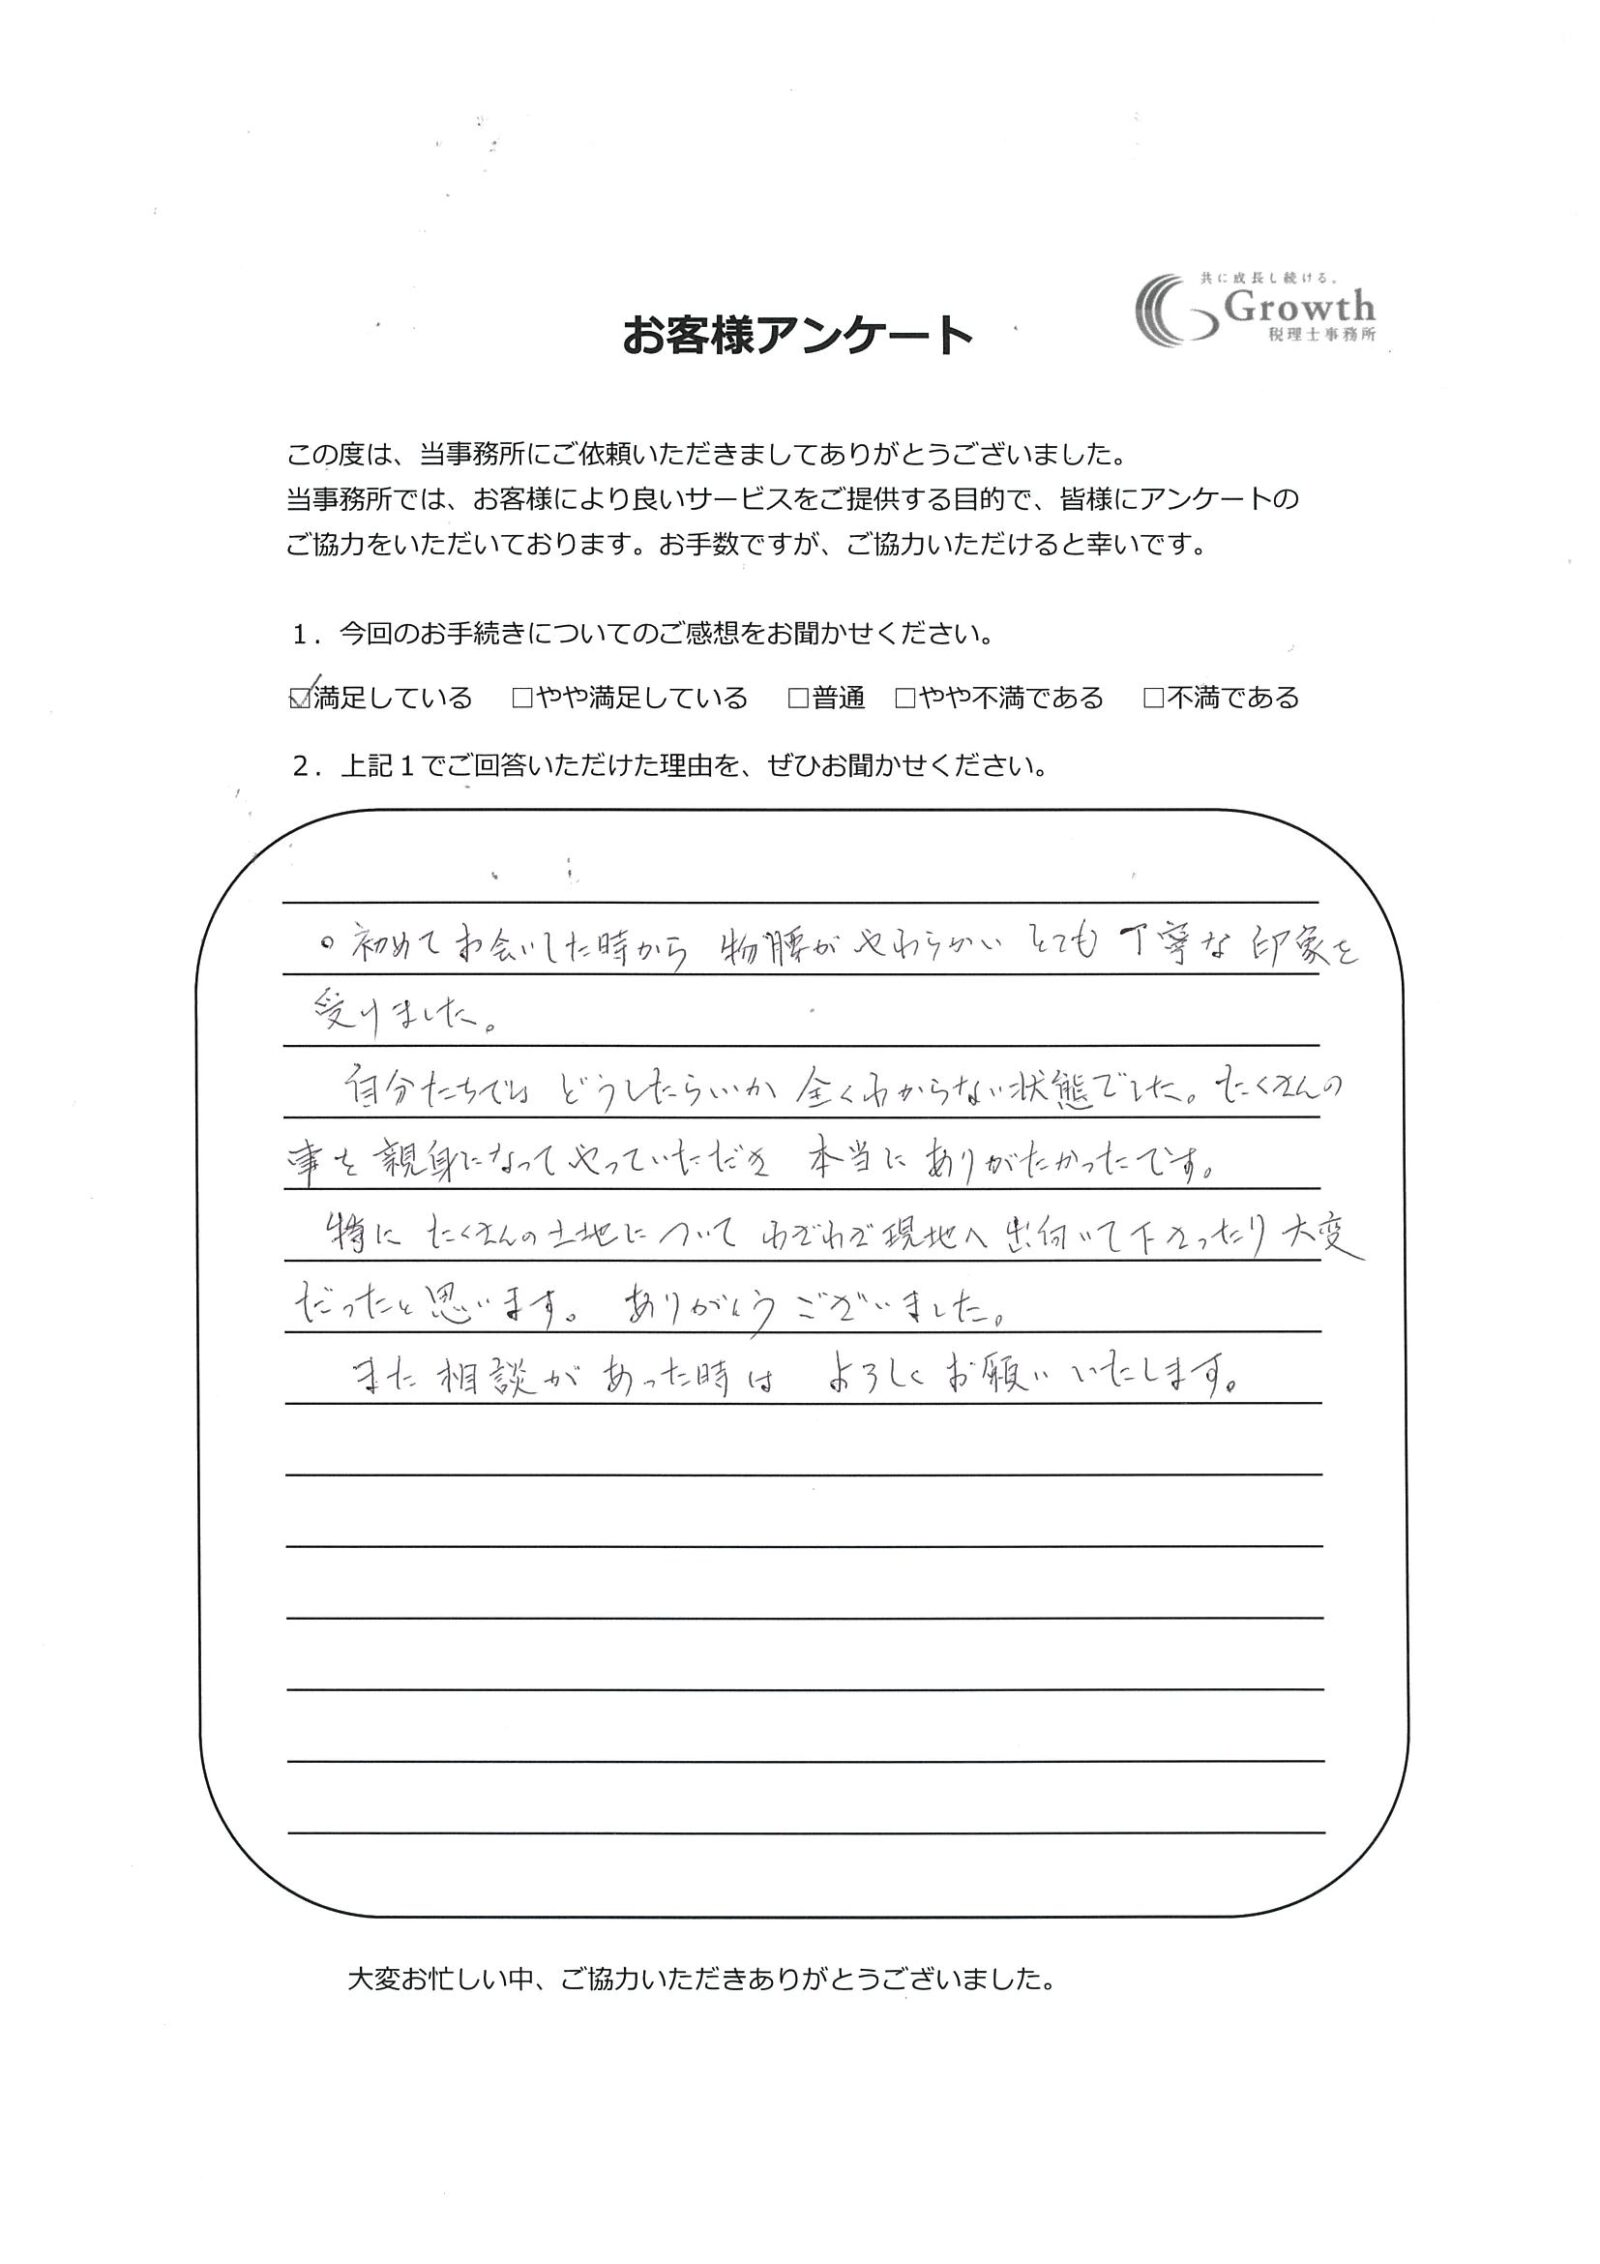 共に成長し続ける。
Growth
税理士事務所
お客様アンケート
この度は、当事務所にご依頼いただきましてありがとうございました。
当事務所では、お客様により良いサービスをご提供する目的で、皆様にアンケートの
ご協力をいただいております。お手数ですが、ご協力いただけると幸いです。
１．今回のお手続きについてのご感想をお聞かせください。
☑満足している □やや満足している □普通 □やや不満である □不満である
２．上記１でご回答いただけた理由を、ぜひお聞かせください。
○初めてお会いした時から 物腰がやわらかい とても 丁寧な 印象を
受けました。
自分たちでは どうしたらいいか 全くわからない状態でした。たくさんの
事を 親身になって やっていただき 本当に ありがたかったです。
特に たくさんの土地に ついて わざわざ現地へ 出向いて下さったり 大変
だったと思います。 ありがとう ございました。
また 相談が あった時は よろしく お願い いたします。
大変お忙しい中、ご協力いただきありがとうございました。